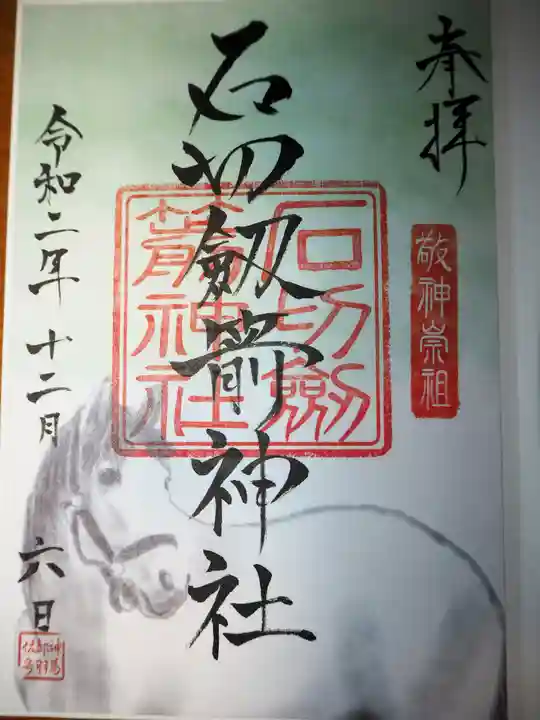 奉拝
敬神崇祖
石切劔箭神社
石切劔
箭神社
令和二年十二月六日